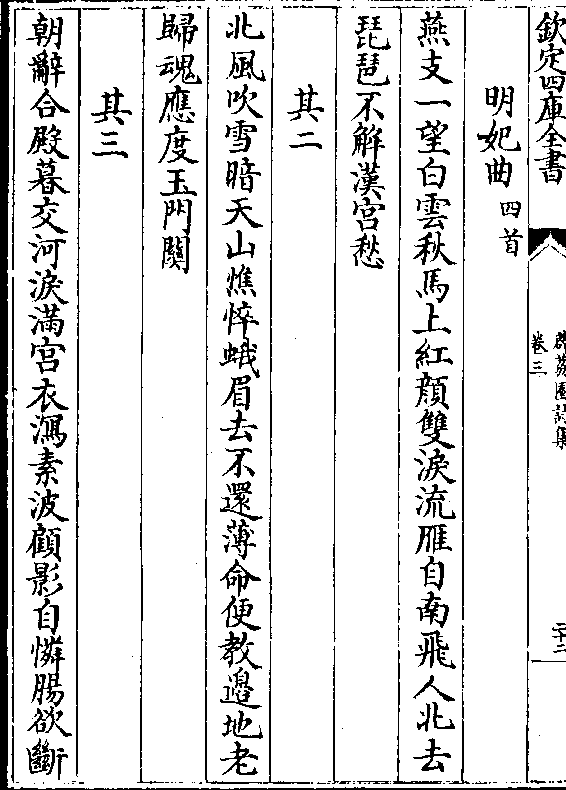 欽定四庫全書
卷三
明妃曲四首
燕支一望白雲秋馬上紅顔雙淚流雁自南飛人北去
琵琶不解漢宮愁
其二
北風吹雪暗天山憔悴蛾眉去不還薄命便教邊地老
歸魂應度玉門關
其三
朝辭合殿暮交河淚滿宮衣濕素波顧影自憐腸欲斷